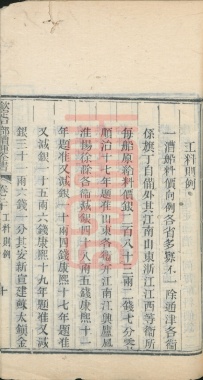 工科則例
一漕船料價向例各省多寡不一除通津各衛
係旗丁自備外其江南山東浙江江西等衛所
每船原給料價銀二百八十三兩二錢七分零
順治十七年題准山東各衛并江南江興廬鳳
淮揚徐滁各衛裁銀四十八兩五錢康熙十一
年題准又減銀二十兩四錢康熙十七年題准
又減銀二十五兩六錢康熙十九年題准又減
銀三十一兩六錢一分其安新宣建蘇太鎮金
工科則例
十